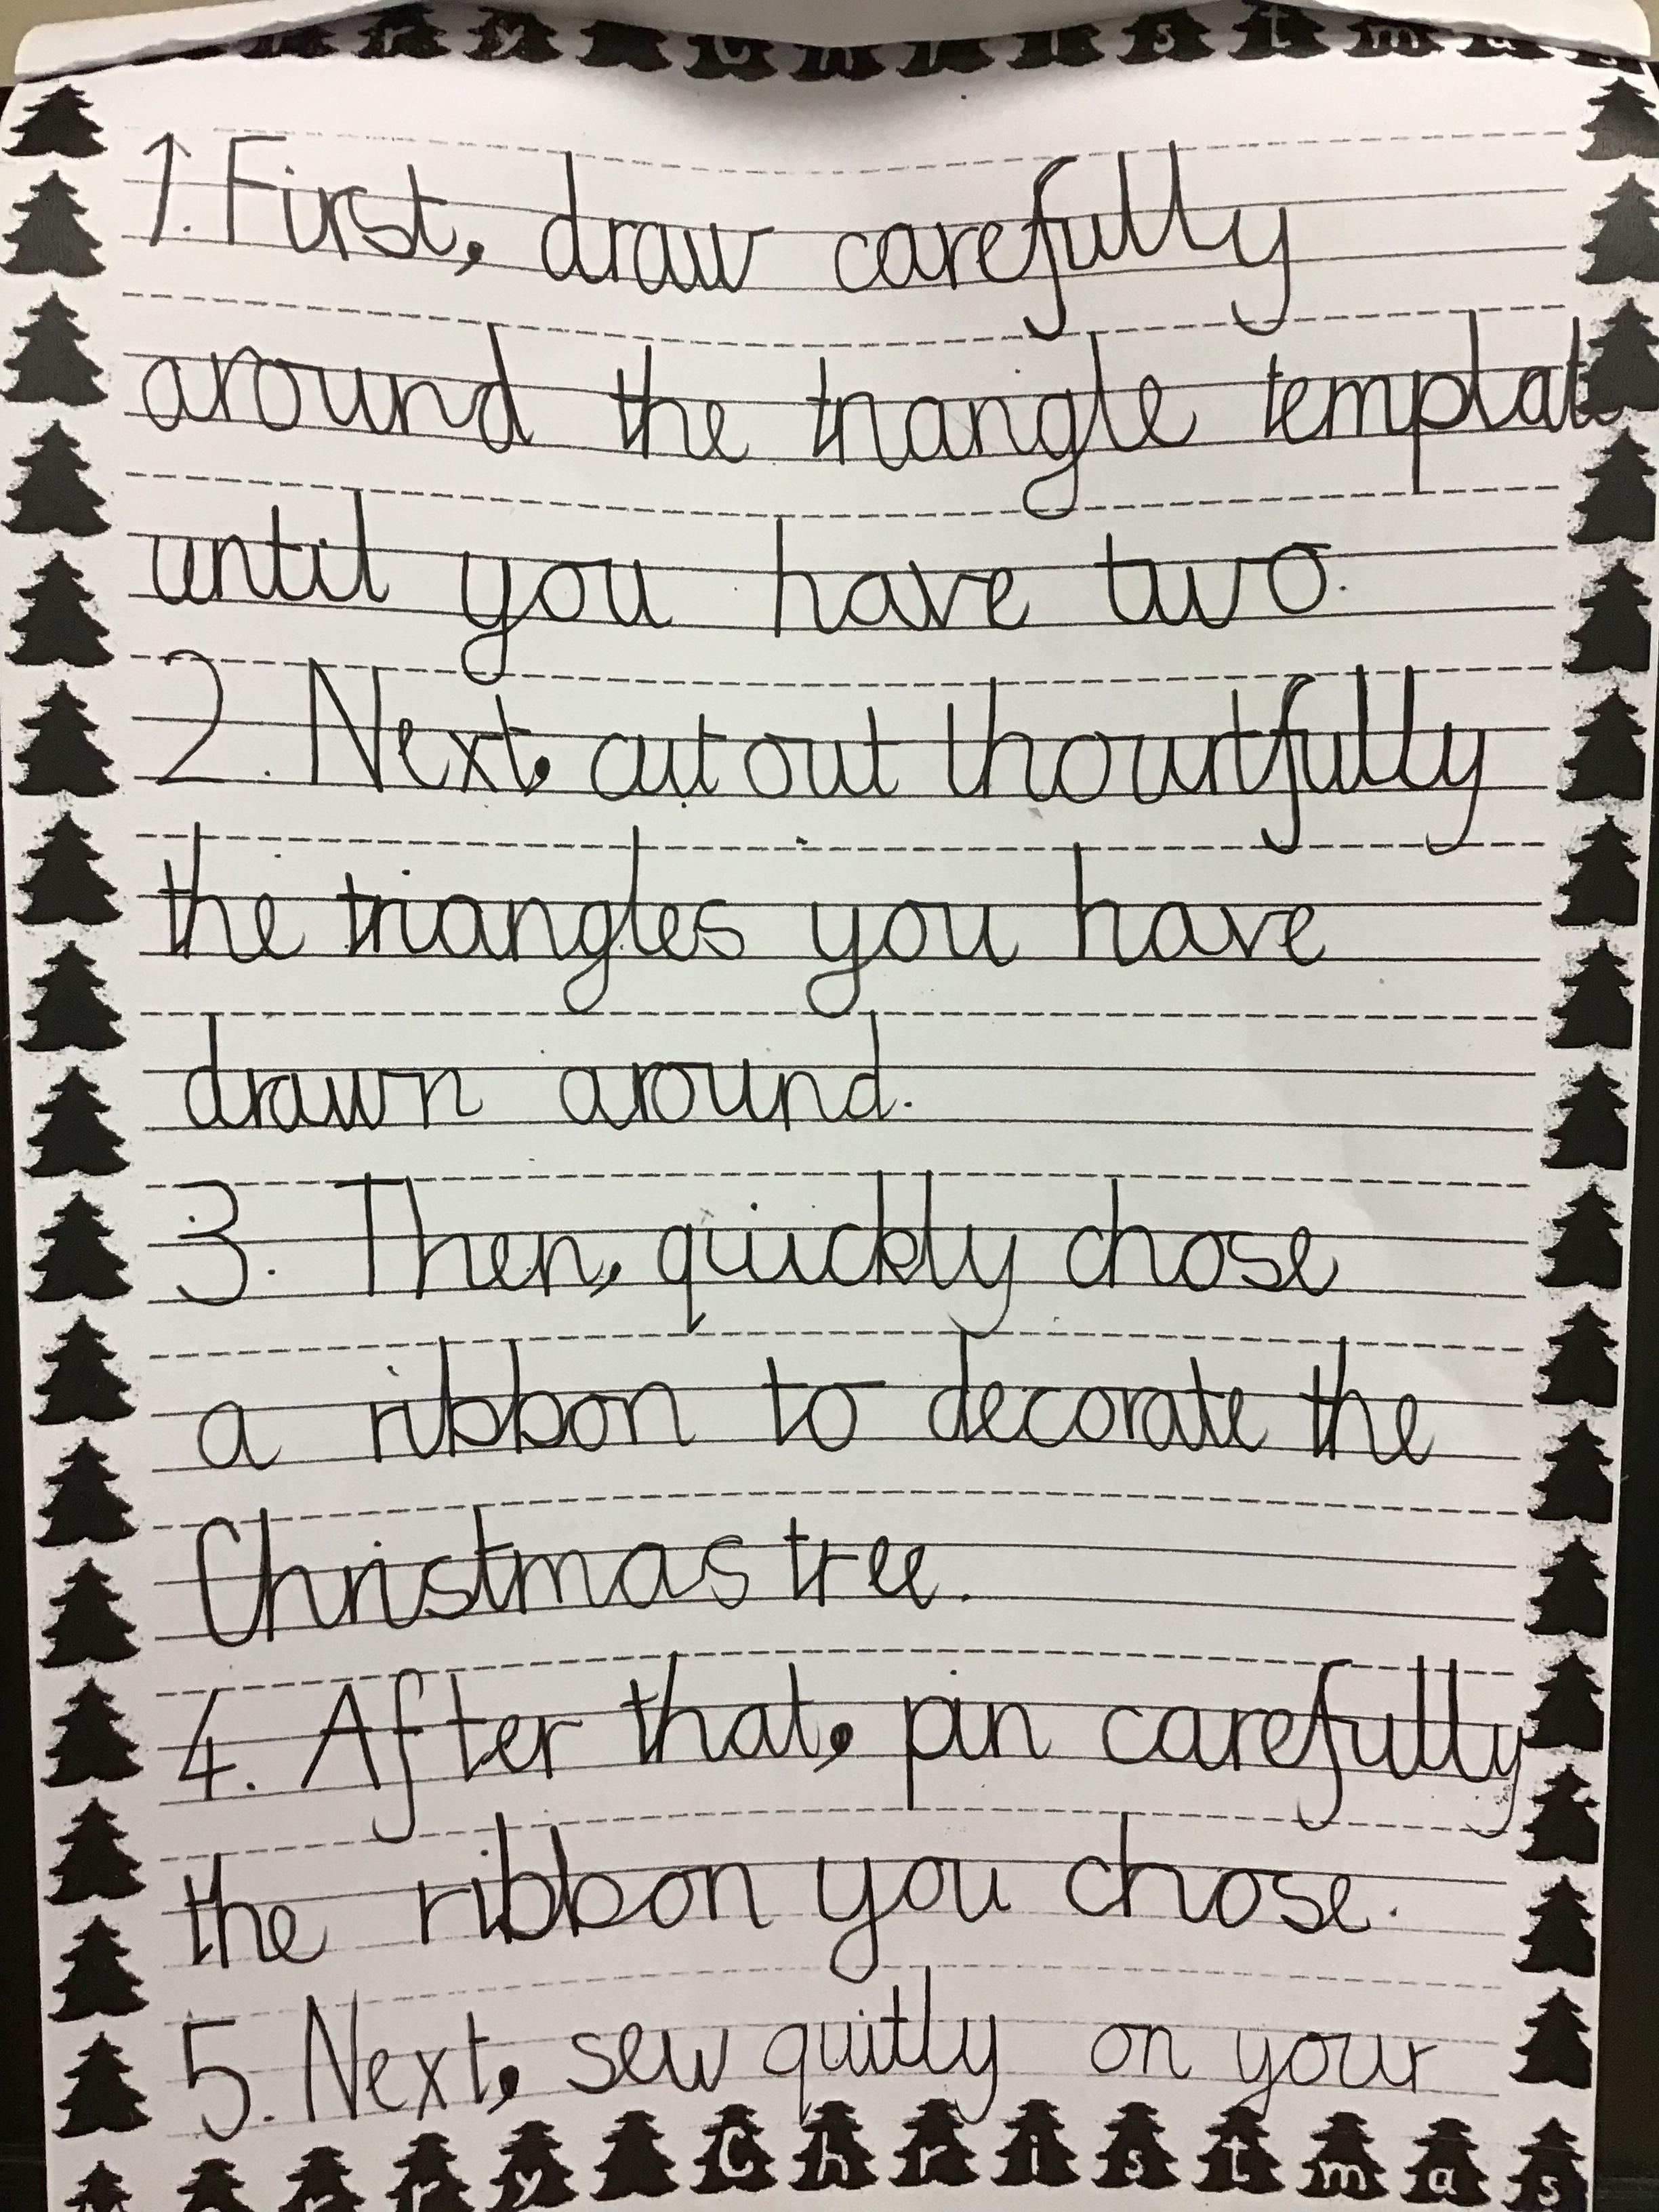 1. First, draw carefully
around the triangle template
until you have two.
2. Next, cut out thourtfully
the triangles you have
drawn around.
3. Then, quickly chose
a ribbon to decorate the
Christmas tree.
4. After that, pin carefully
the ribbon you chose.
5. Next, sew quitly on your
Merry Christmas